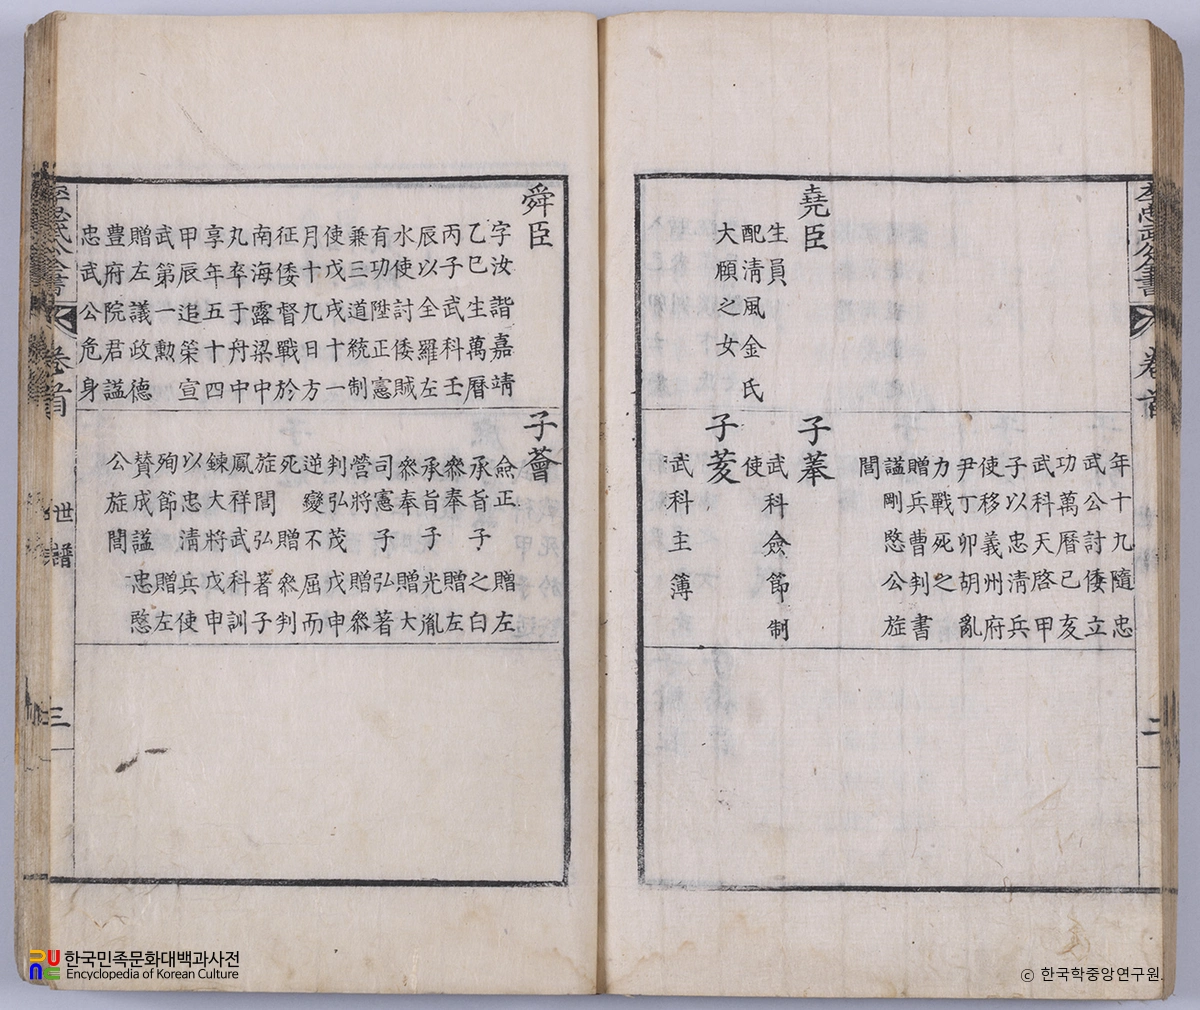 李忠武公全書 卷首 二
堯臣
生員
配清風金氏
大之女
年十九隨忠
武公討倭立
功萬曆己亥
武科天啓甲
子以忠清兵
使移義州府
尹丁卯胡亂
力戰死之
贈兵曹判書
諡剛愍公旌
閭
子菶
武科僉節制
使
子荄
武科主簿
舜臣
字汝諧嘉靖
乙巳生萬曆
丙子武科壬
辰以全羅左
水使討倭賊
有功陞正憲
兼三道統制
使戊戌十一
月十九日方
征倭督戰於
南海露梁中
丸卒于舟中
享年五十四
甲辰追策宣
武第一勳
贈左議政德
豊府院君諡
忠武公危身
子薈
僉正 贈左
承旨子之白
叅奉 贈左
承旨子光胤
叅奉 贈大
司憲子弘著
營將 贈叅
判弘茂戊申
逆變不屈而
死 贈叅判
旌閭弘著子
鳳祥武科訓
鍊大將戊申
以忠清兵使
殉節 贈左
贊成諡忠愍
公旌閭
李忠武公全書 卷首 世譜 三
한국민족문화대백과사전
Encyclopedia of Korean Culture
ⓒ 한국학중앙연구원.